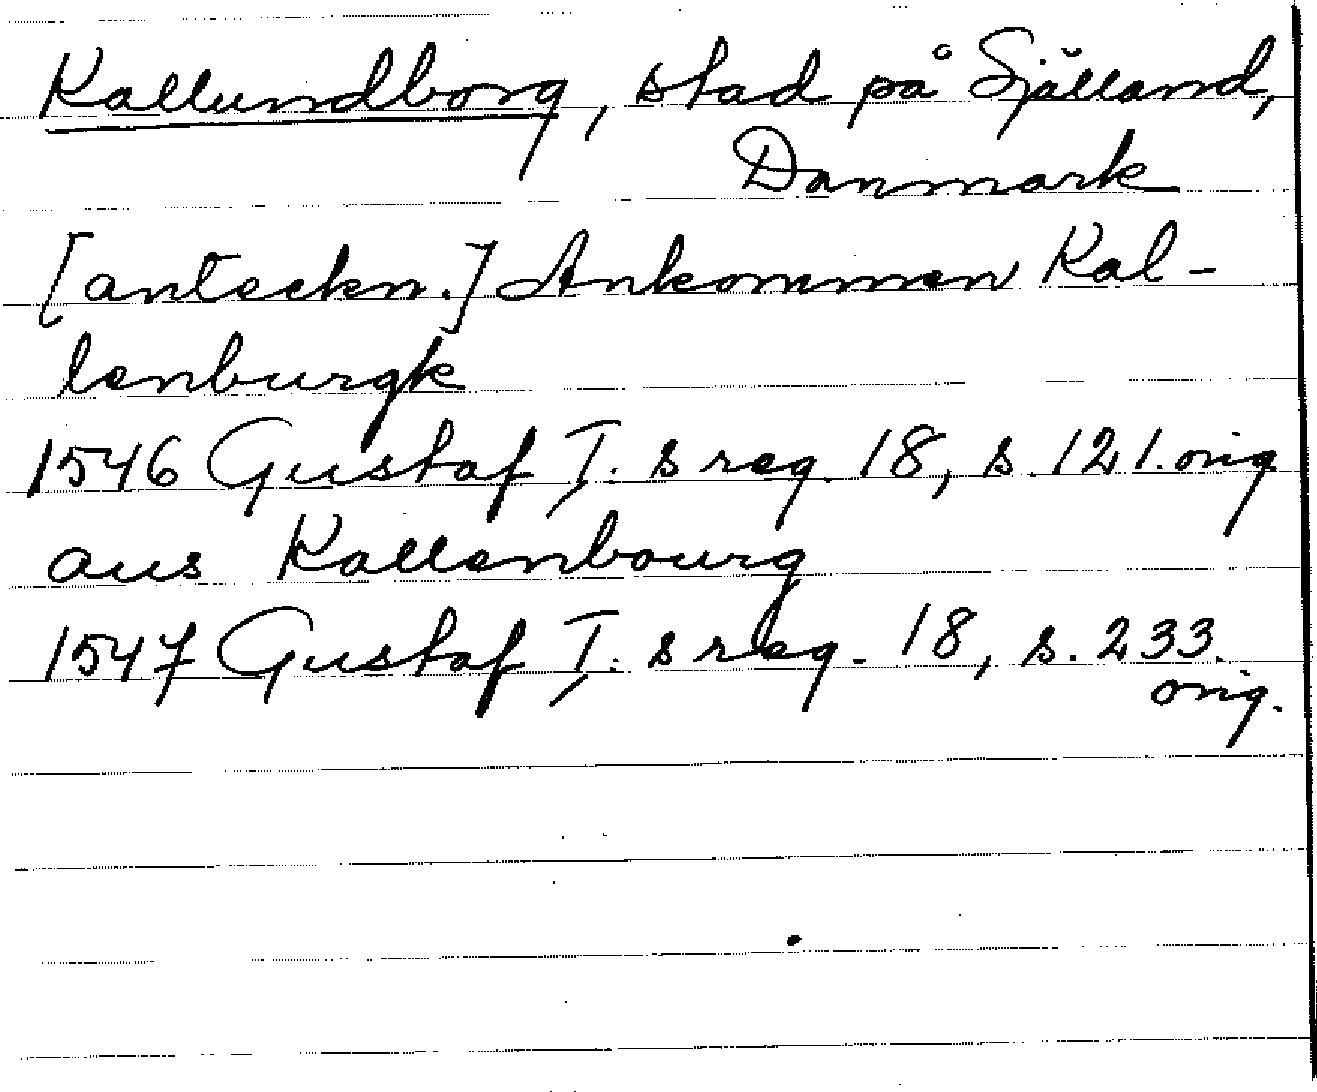 Kallundborg, stad på Själland,
Danmark
[anteckn.] Ankommen Kal-
lenburgk
1546 Gustaf I:s reg. 18, s. 121. orig
aus Kallenbourg
1547 Gustaf I:s reg. 18, s. 233.
orig.